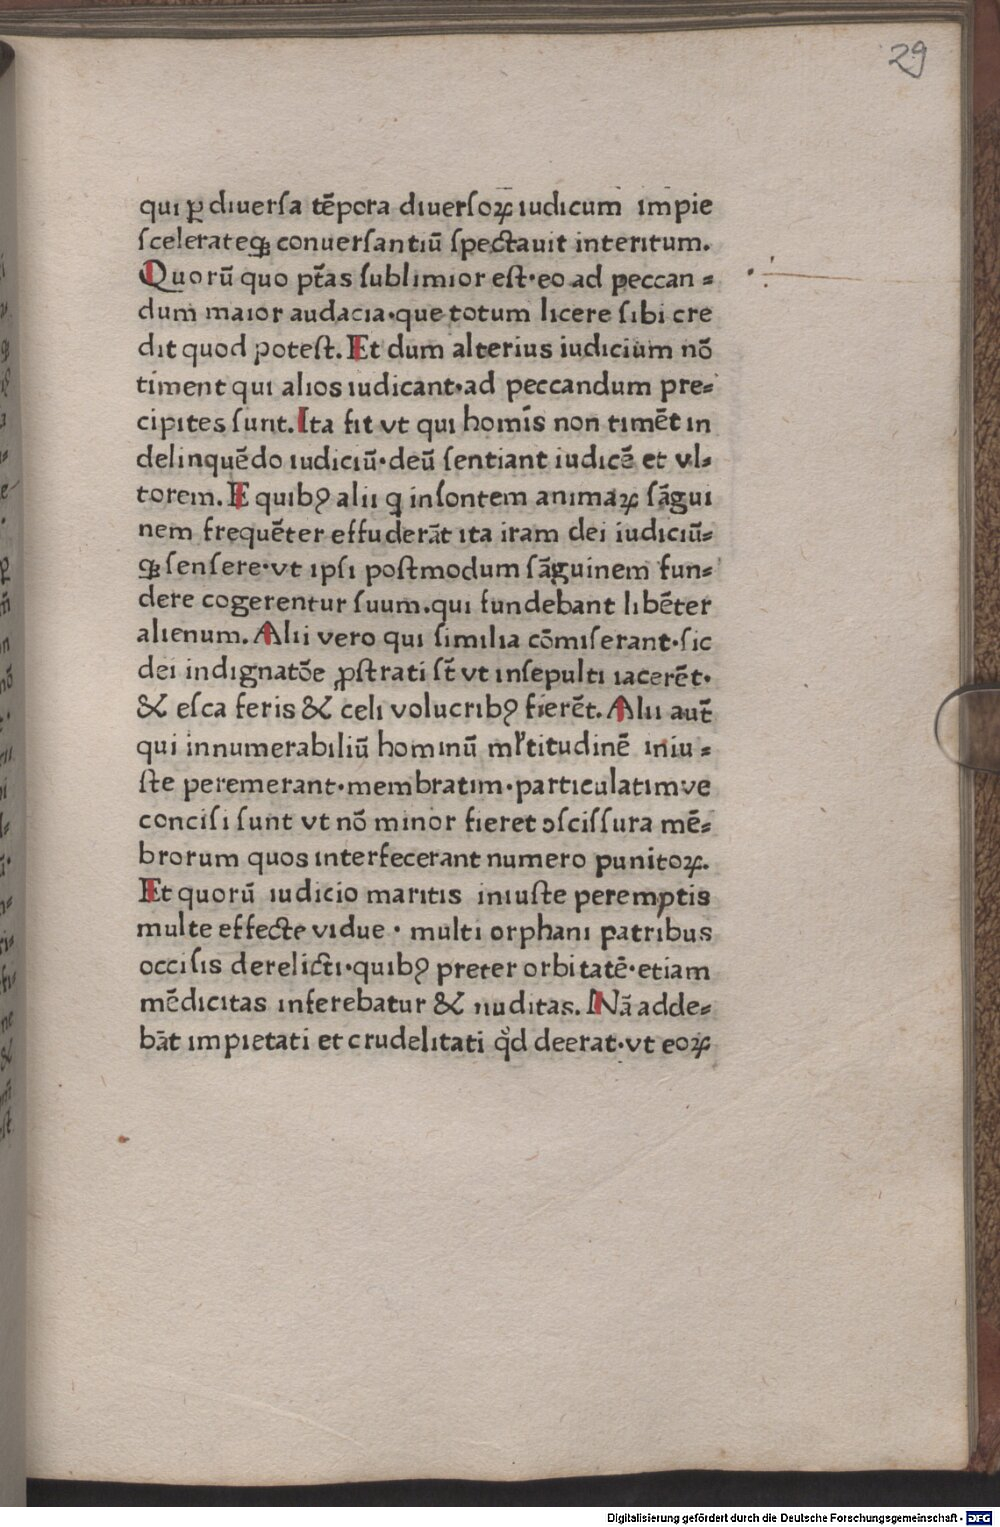 29
qui ꝑ diuerſa tẽpora diuerſoꝝ iudicum impie
ſcelerateqꝫ conuerſantiũ ſpectauit interitum.
Quorũ quo ptãs ſublimior eſt·eo ad peccan⸗
dum maior audacia·que totum licere ſibi cre
dit quod poteſt. Et dum alterius iudicium nõ
timent qui alios iudicant·ad peccandum pre⸗
cipites ſunt. Ita fit vt qui homīs non timẽt in
delinquẽdo iudiciũ·deũ ſentiant iudicẽ et vl⸗
torem. E quibꝰ alii q inſontem animaꝝ ſãgui
nem frequẽter effuderãt ita iram dei iudiciũ⸗
qꝫ ſenſere·vt ipſi poſtmodum ſãguinem fun⸗
dere cogerentur ſuum.qui fundebant libẽter
alienum. Alii vero qui ſimilia cõmiſerant·ſic
dei indignatõe ꝓſtrati ſt̃ vt inſepulti iacerẽt·
& eſca feris & celi volucribꝰ fierẽt. Alii aut̃
qui innumerabiliũ hominũ ml̓titudinẽ iniu⸗
ſte peremerant·membratim·particulatimve
conciſi ſunt vt nõ minor fieret ɔſciſſura mẽ⸗
brorum quos interfecerant numero punitoꝝ.
Et quorũ iudicio maritis iniuſte peremptis
multe effecte vidue · multi orphani patribus
occiſis derelicti·quibꝰ preter orbitatẽ·etiam
mẽdicitas inferebatur & nuditas. Nã adde⸗
bãt impietati et crudelitati qd̓ deerat·vt eoꝝ
Digitalisierung gefördert durch die Deutsche Forschungsgemeinschaft - DFG